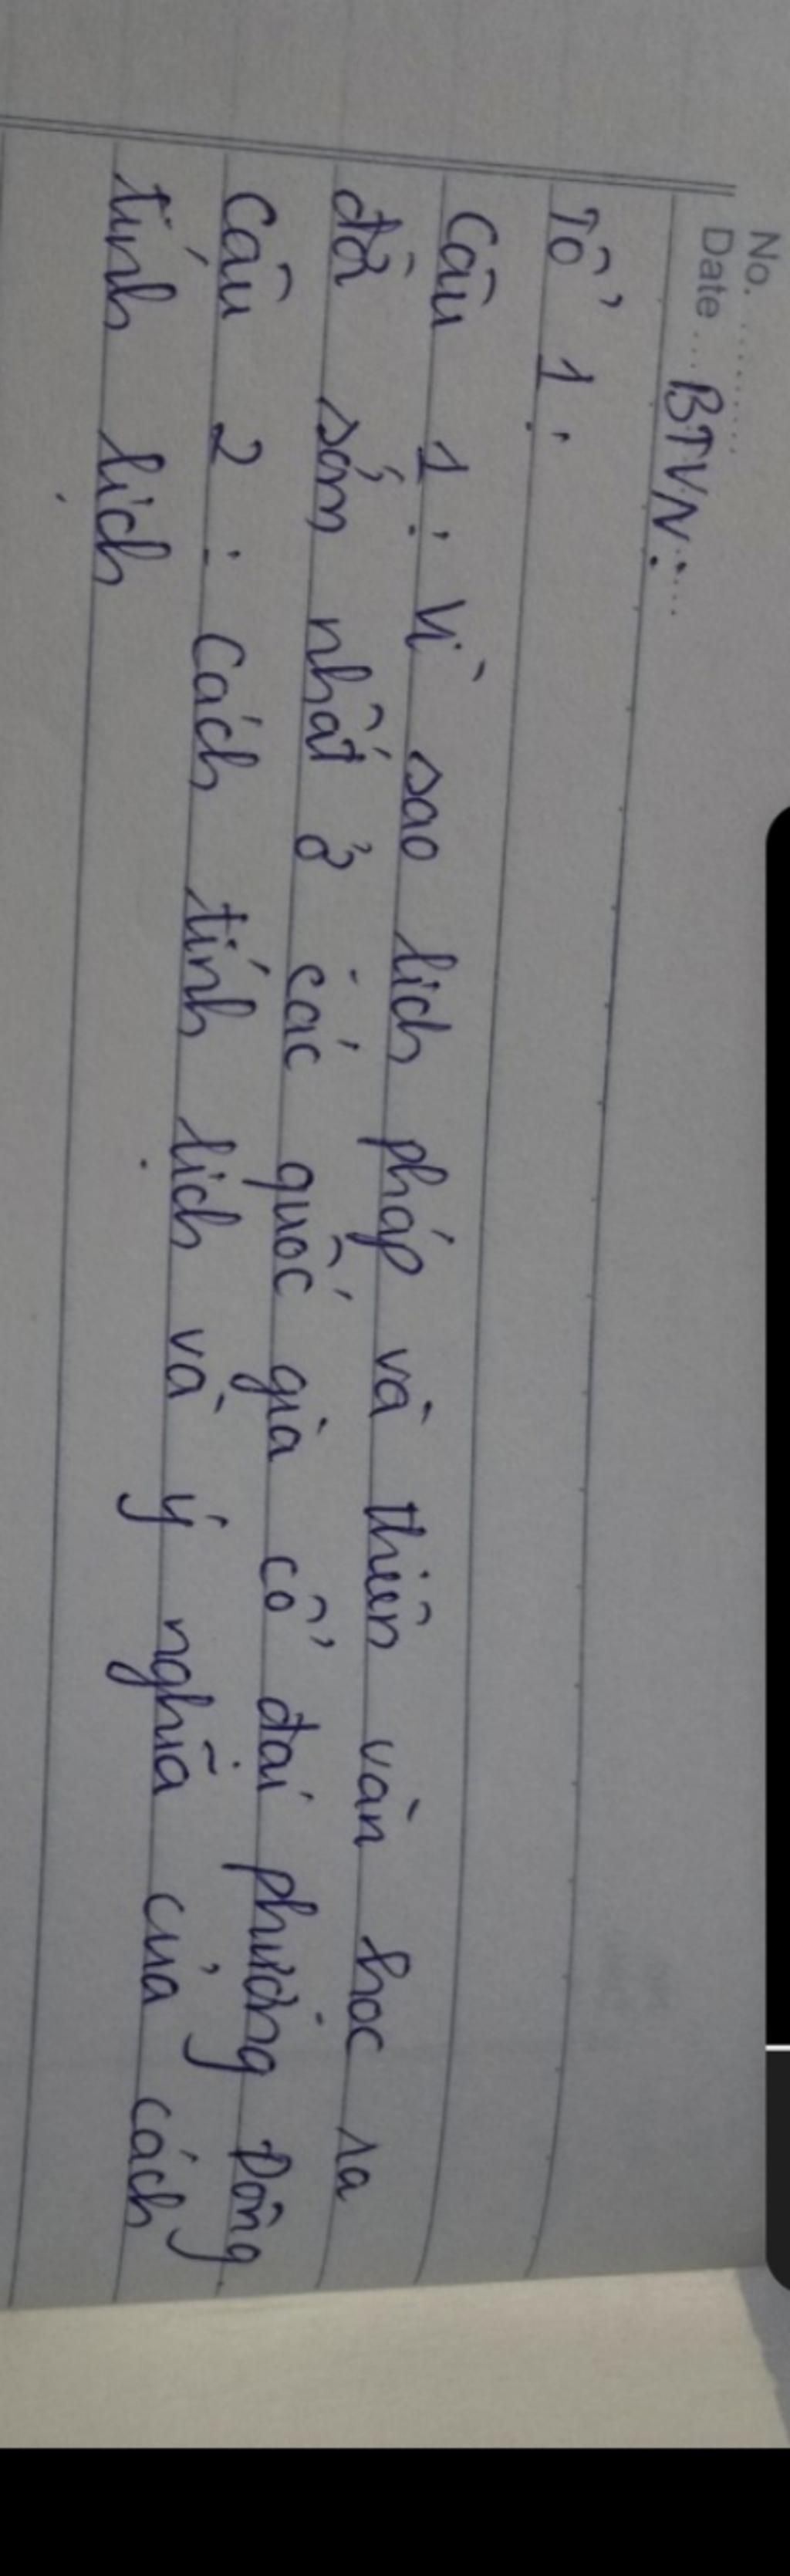 No. ..........
Date ... BTVN: ....
Tổ 1:
Câu 1: Vì sao lịch pháp và thiên văn học ra
đời sớm nhất ở các quốc gia cổ đại phương Đông
Câu 2: Cách tính lịch và ý nghĩa của cách
tính lịch